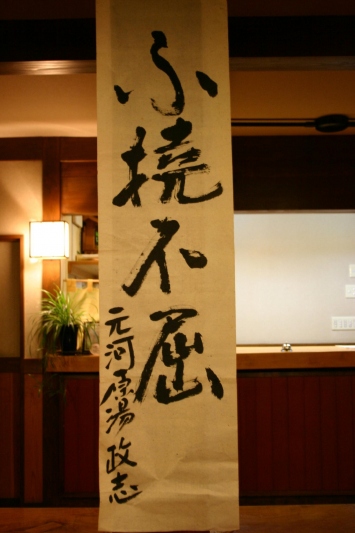 不撓不屈
元河原湯 政志